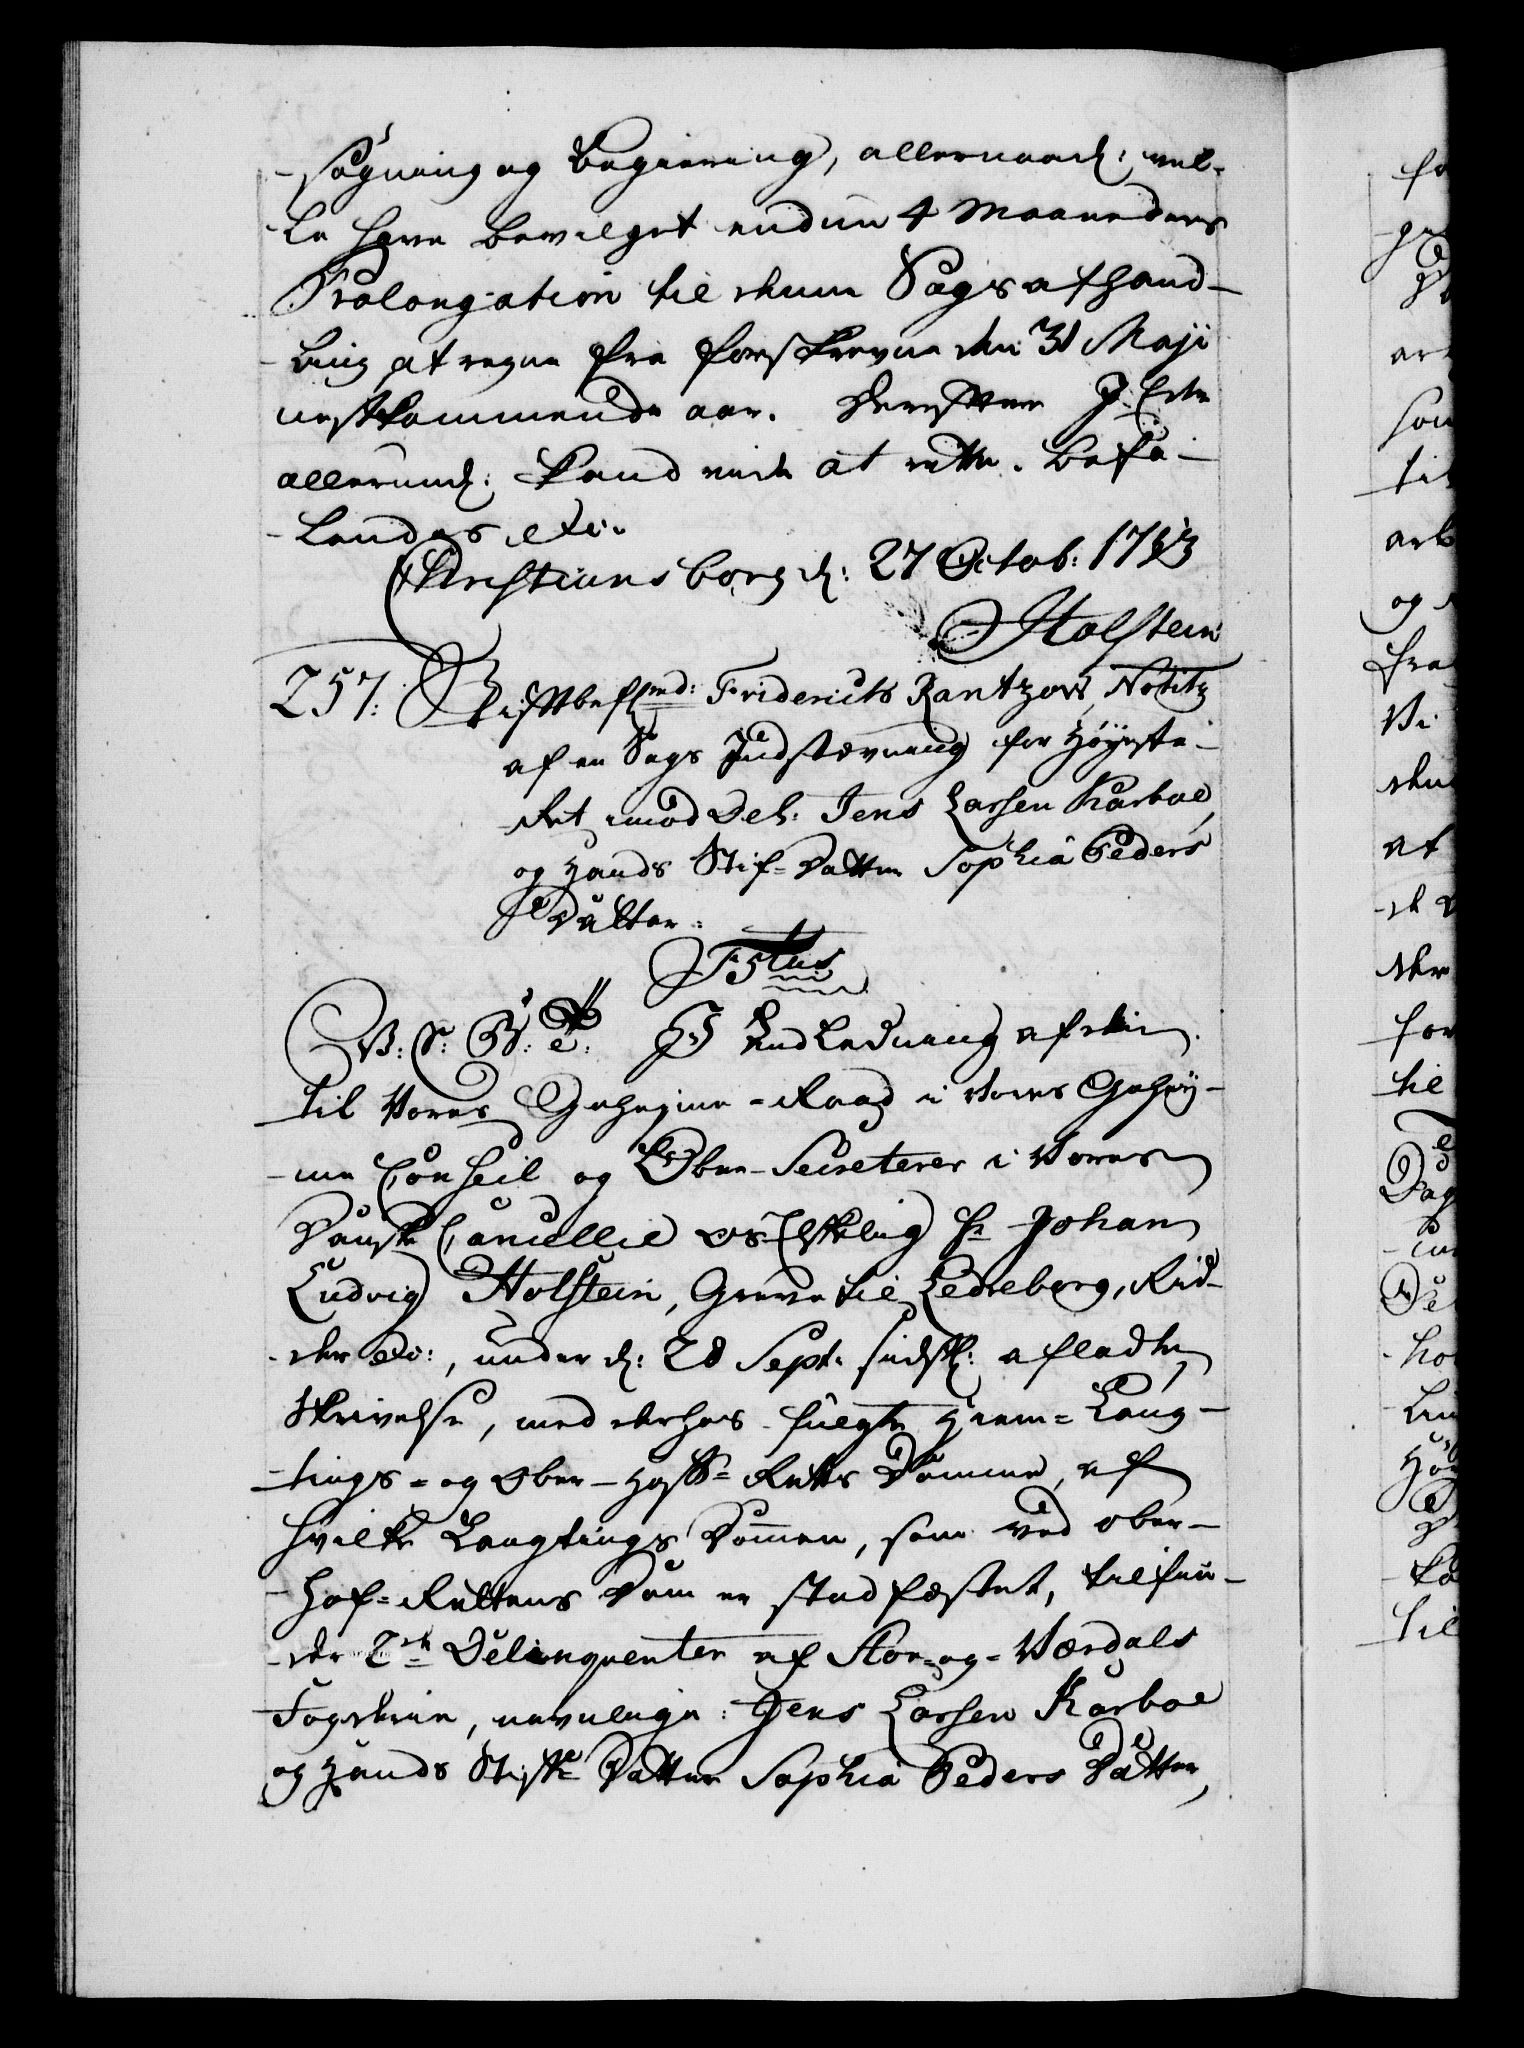 -søgning og Begiering, allernaad: vel-
le have bevilget endnu 4 Maaneders
Prolongation til denne Sags afhand-
-ling at regne fra forskrevne den 31 Maji
nestkommende aar. Derefter I Eder
allerund: kand vide at rette. Befa-
-lendes etc.
Christiansborg d: 27 Octob: 1743
Holstein
257: Stiftbefhmd: Friderichs Rantzow, Notitz
af en Sags Indstævning for Høyeste-
-Ret imod Del: Jens Larsen Karboe,
og hands Stif-Datter Sophia Peders
Datter.
F5tus
V: S: G: T: I Andledning af din
til Vores Geheyme-Raad i Vores Gehey-
-me Conseil og Ober-Secreterer i Vores
Danske Cancellie os Elskelig Hr Johan
Ludvig Holstein, Greve til Ledreborg, Rid-
-der etc:, under d: 28 Sept: sidstl: afladte
Skrivelse, med derhos fulgte Hiem= Laug-
-tings= og Ober-Hoff= Rettes Domme, af
hvilke Laugtings Dommen, som ved ober-
-Hof=Rettens Dom er stadfæstet, tilfin-
-der 2de Delinquenter af Stør-og-Værdals
Fogderie, navnlige: Jens Larsen Karboe
og hands Stif= Datter Sophia Peders Datter,